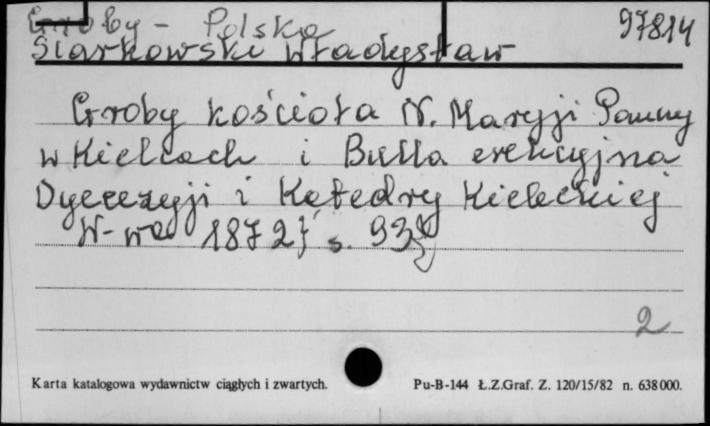 Groby - Polska 97814
Siarkowski Władysław
Groby kościoła N. Maryji Panny
w Kielcach i Bulla erekcyjna
Dyecezyji i Katedry Kieleckiej
W-wa 1872 s. 93
2
Karta katalogowa wydawnictw ciągłych i zwartych. Pu-B-144 Ł.Z.Graf. Z. 120/15/82 n. 638000.